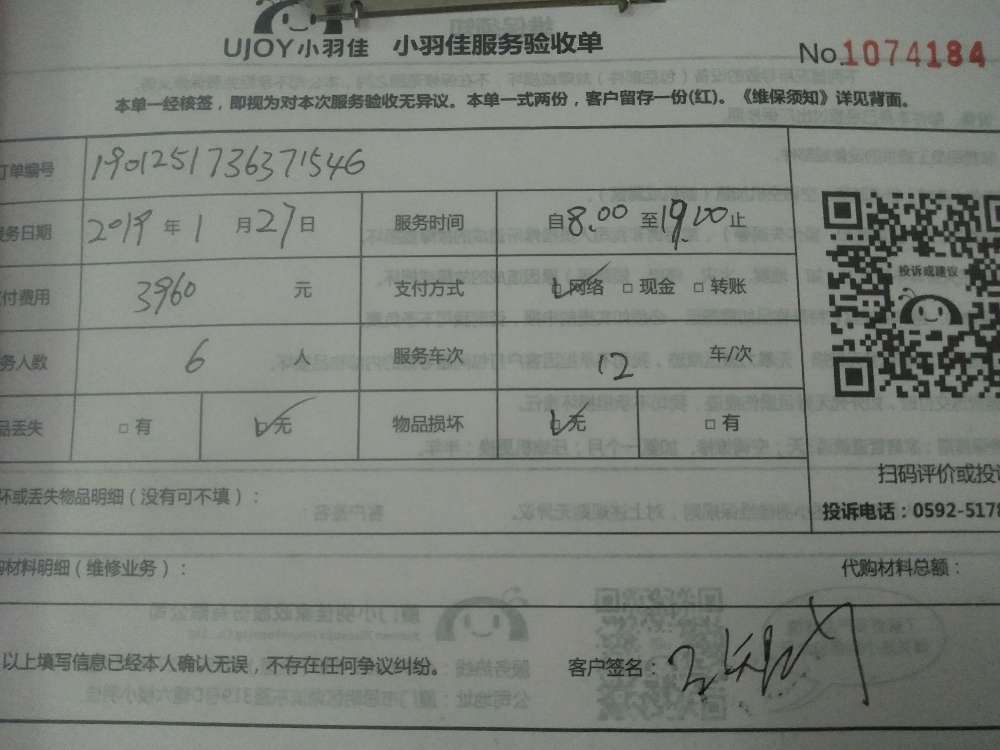 UJOY小羽佳 小羽佳服务验收单
No.1074184
本单一经核签，即视为对本次服务验收无异议。本单一式两份，客户留存一份(红)。《维保须知》详见背面。
订单编号 1901251736371546
服务日期 2019 年 1 月 27 日 服务时间 自 8:00 至 19:00 止
付费用 3960 元 支付方式 网络 现金 转账
务人数 6 人 服务车次 12 车/次
品丢失 有 无 物品损坏 无 有
投诉或建议
扫码评价或投诉
坏或丢失物品明细（没有可不填）：
投诉电话：0592-5178
购材料明细（维修业务）： 代购材料总额：
以上填写信息已经本人确认无误，不存在任何争议纠纷。 客户签名：